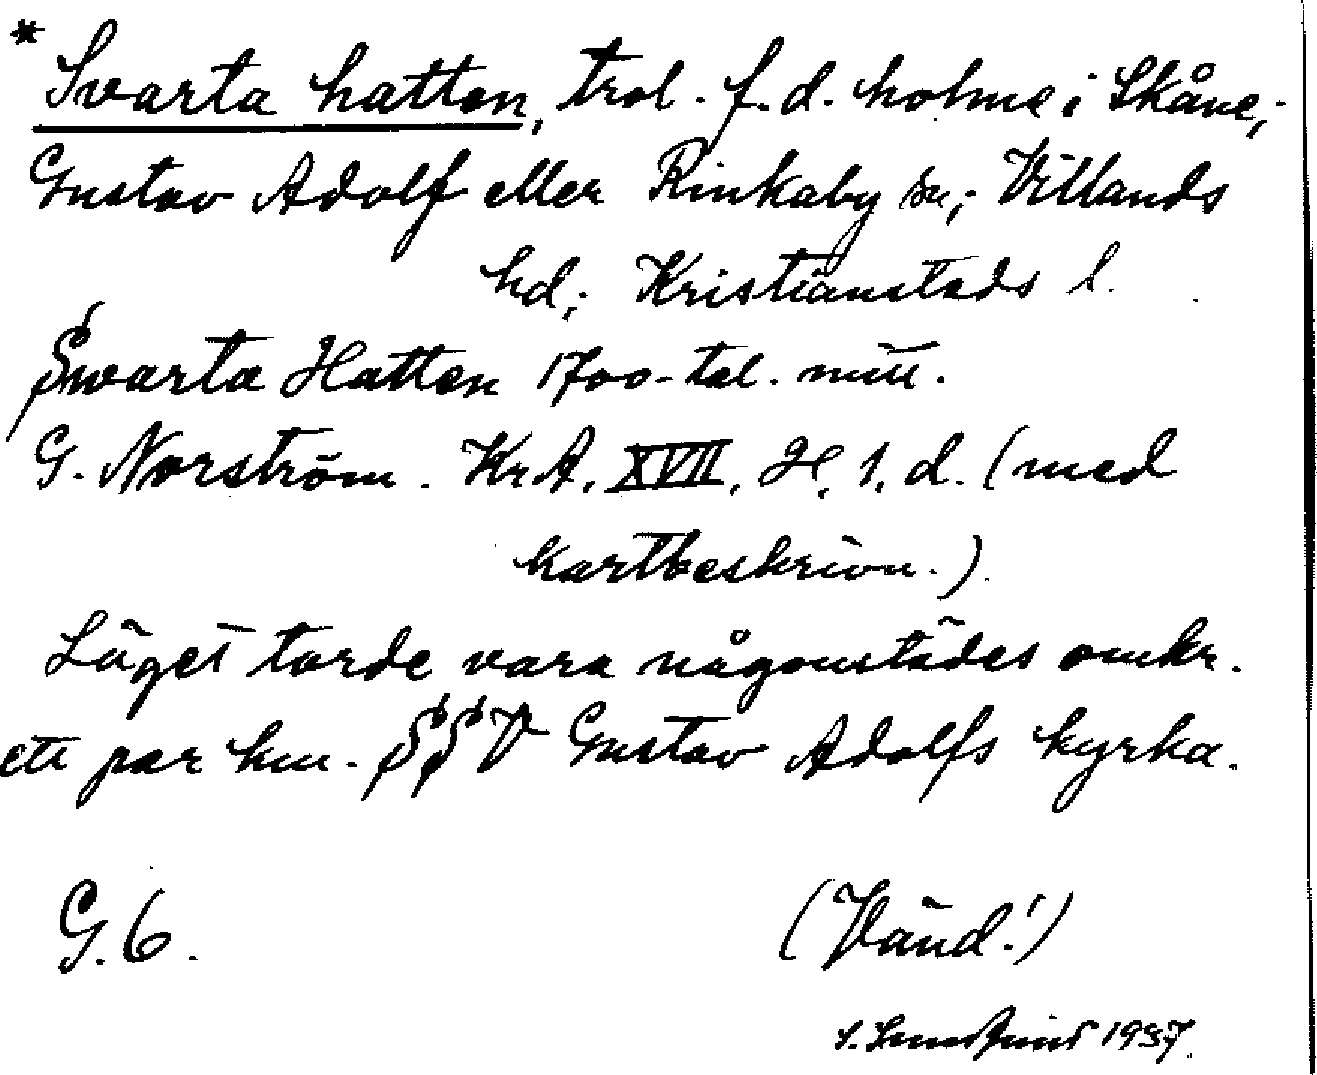 * Svarta hatten, trol. f.d. holme i Skåne,
Gustav Adolf eller Rinkaby sn; Villands
hd; Kristianstads l.
Swarta Hatten 1700-tal. mitt.
G. Norström. Kr.A. XVII. H. 1. d. (med
kartbeskrivn.)
Läget torde vara någonstädes omkr.
ett par km. SSV Gustav Adolfs kyrka.
G. 6.
(Vänd!)
1937